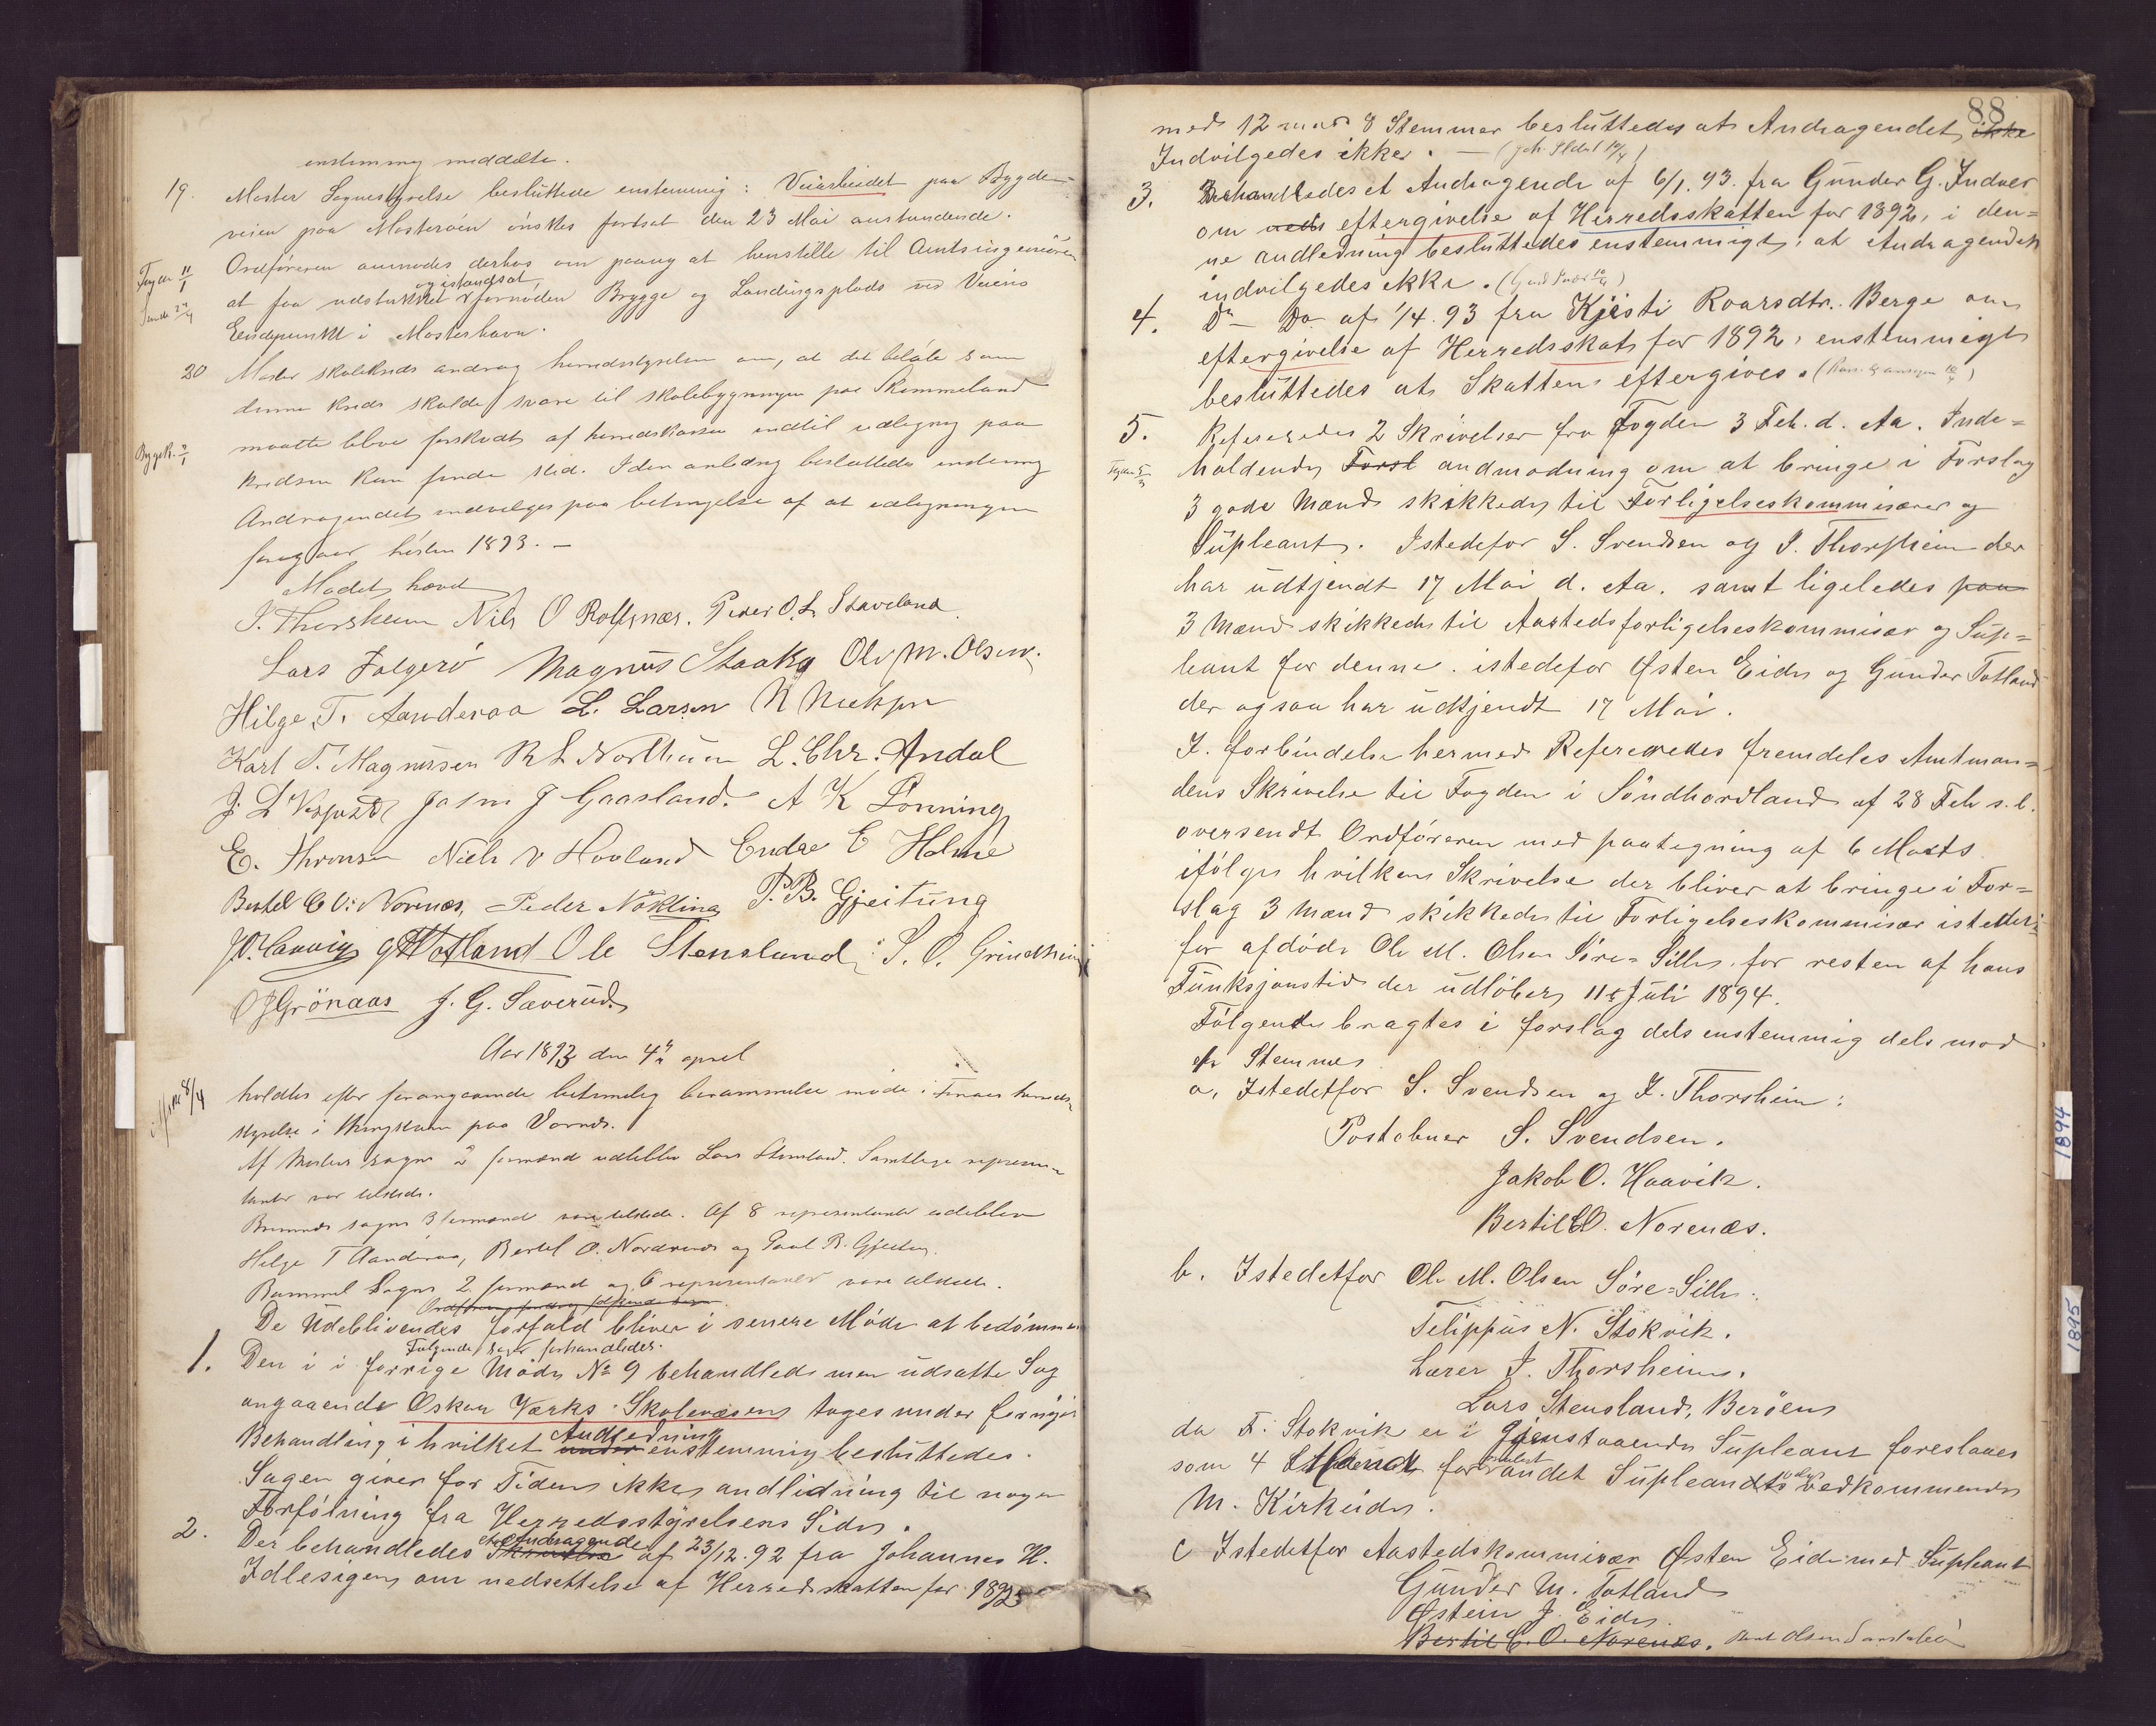 enstemmig meddelte.
19. Moster Sognestyrelse besluttede enstemmig: Veiarbeidet paa Bygde-
veien paa Mosterøen ønskes fortsat den 23 Mai anstundende.
Ordføreren anmodes derhos om paany at henstille til Amtsingeniøren
at faa udstukket og istandsat fornøden Brygge og Landingsplads ved Veiens
Endepunkt i Mosterhavn.
20 Moster skolekreds androg herredsstyrelsen om, at det beløb som
denne kreds skulde svare til skolebygningen paa Skimmeland
maatte blive forskudt af herredskassen indtil udligning paa
kredsen kan finde sted. I den anledning besluttedes enstemmig
Andragendet indvilges paa betingelse af at udligningen
foregaar høsten 1893. –
Mødet hævet
J. Thorsheim Nils O Rolfsnæs. Peder O. L. Staveland
Lars Folgerø Magnus Stavka Ole M. Olsen.
Hilge T. Aanderaa L. Larsen N Nielsen
Karl T. Magnusen R L Northuun L. Chr. Andal
J. L Vespestd Jahn J Gaasland. A K Lønning
E. Thronsen Niels V Hovland Endre E Holme
Bertel C O. Norenæs, Peder Nøkling P. B. Gjeitung
J O. Haavig G M Totland Ole Stensland S. O. Grindheim
O J Grønaas J. G. Sæverud.
Aar 1893 den 4de april
holdtes efter foregaaende betimelig berammelse møde i Finaas herreds-
styrelse i thingstuen paa Vornæs.
Af Mosters sogns 2 formænd udeblev Lars Stensland. Samtlige represen-
tanter var tilstede.
Bremnæs sogns 3 formænd var tilstede. Af 8 representanter udeblev
Helge T Aanderaa, Bertel O. Nordnæs og Paul B. Gjeitung.
Bømmel Sogns 2 formænd og 6 representanter vare tilstede.
De Udeblivendes forfald bliver i senere Møde at bedømme
Følgende sager forhandledes.
1. Den i i forrige Møde No 9 behandlede men udsatte Sag
angaaende Oskar Værks Skolevæsen toges under fornyet
Behandling i hvilket under Andledning enstemmig besluttedes.
Sagen giver for Tiden ikke andledning til nogen
Forføining fra Herredsstyrelsens Side.
2. Der behandledes Skrivelse et Andragende af 23/12.92 fra Johannes H.
Idlesigen om nedsettelse af Herredsskatten for 1892
88
med 12 mod 8 Stemmer besluttedes at Andragendet ikke
Indvilgedes ikke.
3. Behandledes et Andragende af 6/1.93. fra Gunder G. Indvær
om neds eftergivelse af Herredsskatten for 1892, i den=
ne andledning besluttedes enstemmigt, at Andragendet
indvilgedes ikke.
4. Do – Do af 1/4.93 fra Kjisti Roarsdtr. Berge om
eftergivelse af Herredsskat for 1892, enstemmigt
besluttedes at Skatten eftergives.
5. Refereredes 2 Skrivelser fra Fogden 3 Feb. d. Aa. Inde=
holdende Forsl andmodning om at bringe i Forslag
3 gode Mænd skikkede til Forligelseskommisærer og
Supleant. Istedefor S. Svendsen og J. Thorsheim der
har udtjendt 17 Mai d. Aa. samt ligeledes paa
3 Mænd skikkede til Aastedsforligelseskommisær og Sup=
leant for denne. istedefor Østen Eide og Gunder Totland
der ogsaa har udtjendt 17 Mai.
I. forbindelse hermed Refereredes fremdeles Amtman=
dens Skrivelse til Fogden i Søndhordland af 28 Feb s. l.
oversendt Ordføreren med paategning af 6 Marts
ifølge hvilken Skrivelse der bliver at bringe i For=
slag 3 Mænd skikkede til Forligelseskommisær istedet=
for afdøde Ole M. Olsen Søre=Sille for resten af hans
Funksjonstid der udløber 11te Juli 1894.
Følgende bragtes i forslag dels enstemmig dels mod
Stemmer
a, Istedetfor S. Svendsen og J. Thorsheim:
Postabner S. Svendsen.
Jakob O. Haavik.
Bertil C O. Norenæs.
b. Istedetfor Ole M. Olsen Søre=Sille.
Filippus N. Stokvik.
Lærer J. Thorsheim.
Lars Stensland, Berøen
da F. Stokvik er i gjenstaaende Supleant foreslaaes
som 4 for andet Supleandts vedkommende
M. Kirkeide.
c Istedetfor Aastedskommisær Østen Eide med Supleant
Gunder M. Totland
Østein J. Eide.
Bertil C. O. Norenæs.
1894
1895